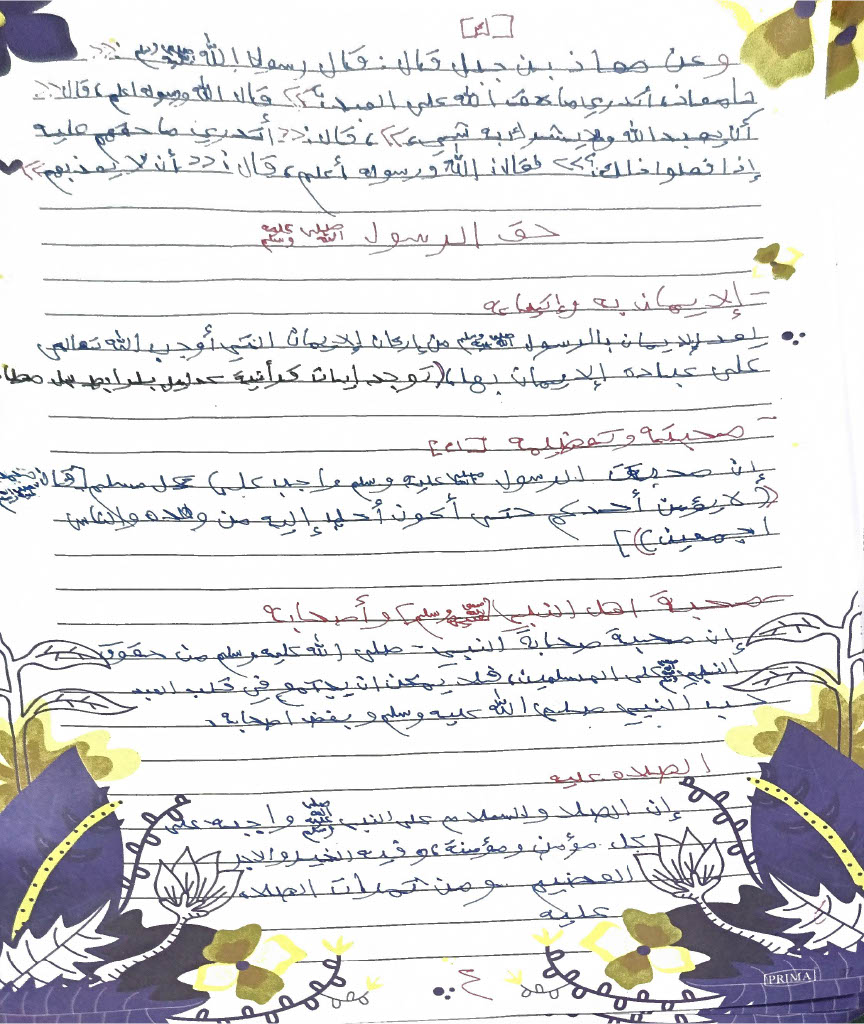 [٤]
وعن معاذ بن جبل قال: قال رسول الله ﷺ: >>
يا معاذ، أتدري ما حق الله على العبد؟>> قال: الله ورسوله اعلم، قال: >>
أن يعبد الله ولا يشرك به شيء>>، قال: >>أتدري ما حقهم عليه
إذا فعلوا ذالك؟>> فقال: الله ورسوله أعلم، قال: >> أن لا يعذبهم>>
حق الرسول صلى الله عليه وسلم
- الإيمان به وإتباعه
يعد الإيمان بالرسول ﷺ من إركان الإيمان التي أوجب الله تعالى
على عباده الإيمان بها،(توجد إيات كرأنية
- محبته وتعضيمه
إن محبت الرسول ﷺ عليه وسلم واجب على كل مسلم [قال
((لا يؤمن أحدكم حتى أكون أحب إليه من ولده والناس
اجمعين))]
- محبة اهل النبي (ﷺ وسلم) وأصحابه
إن محبة صحابة النبي - صلى الله عليه وسلم من حقوق
النبي ﷺ على المسلمين، فلا يمكن ان يجتمع في قلب العبد
حب النبي صلى الله عليه وسلم و بغض اصحابه.
الصلاه عليه
إن الصلا والسلام على النبي ﷺ واجبه على
كل مؤمن ومؤمنة، وفيه الخير والاجر
العضيم ومن ثمرات الصلاه
عليه
٤
PRIMA